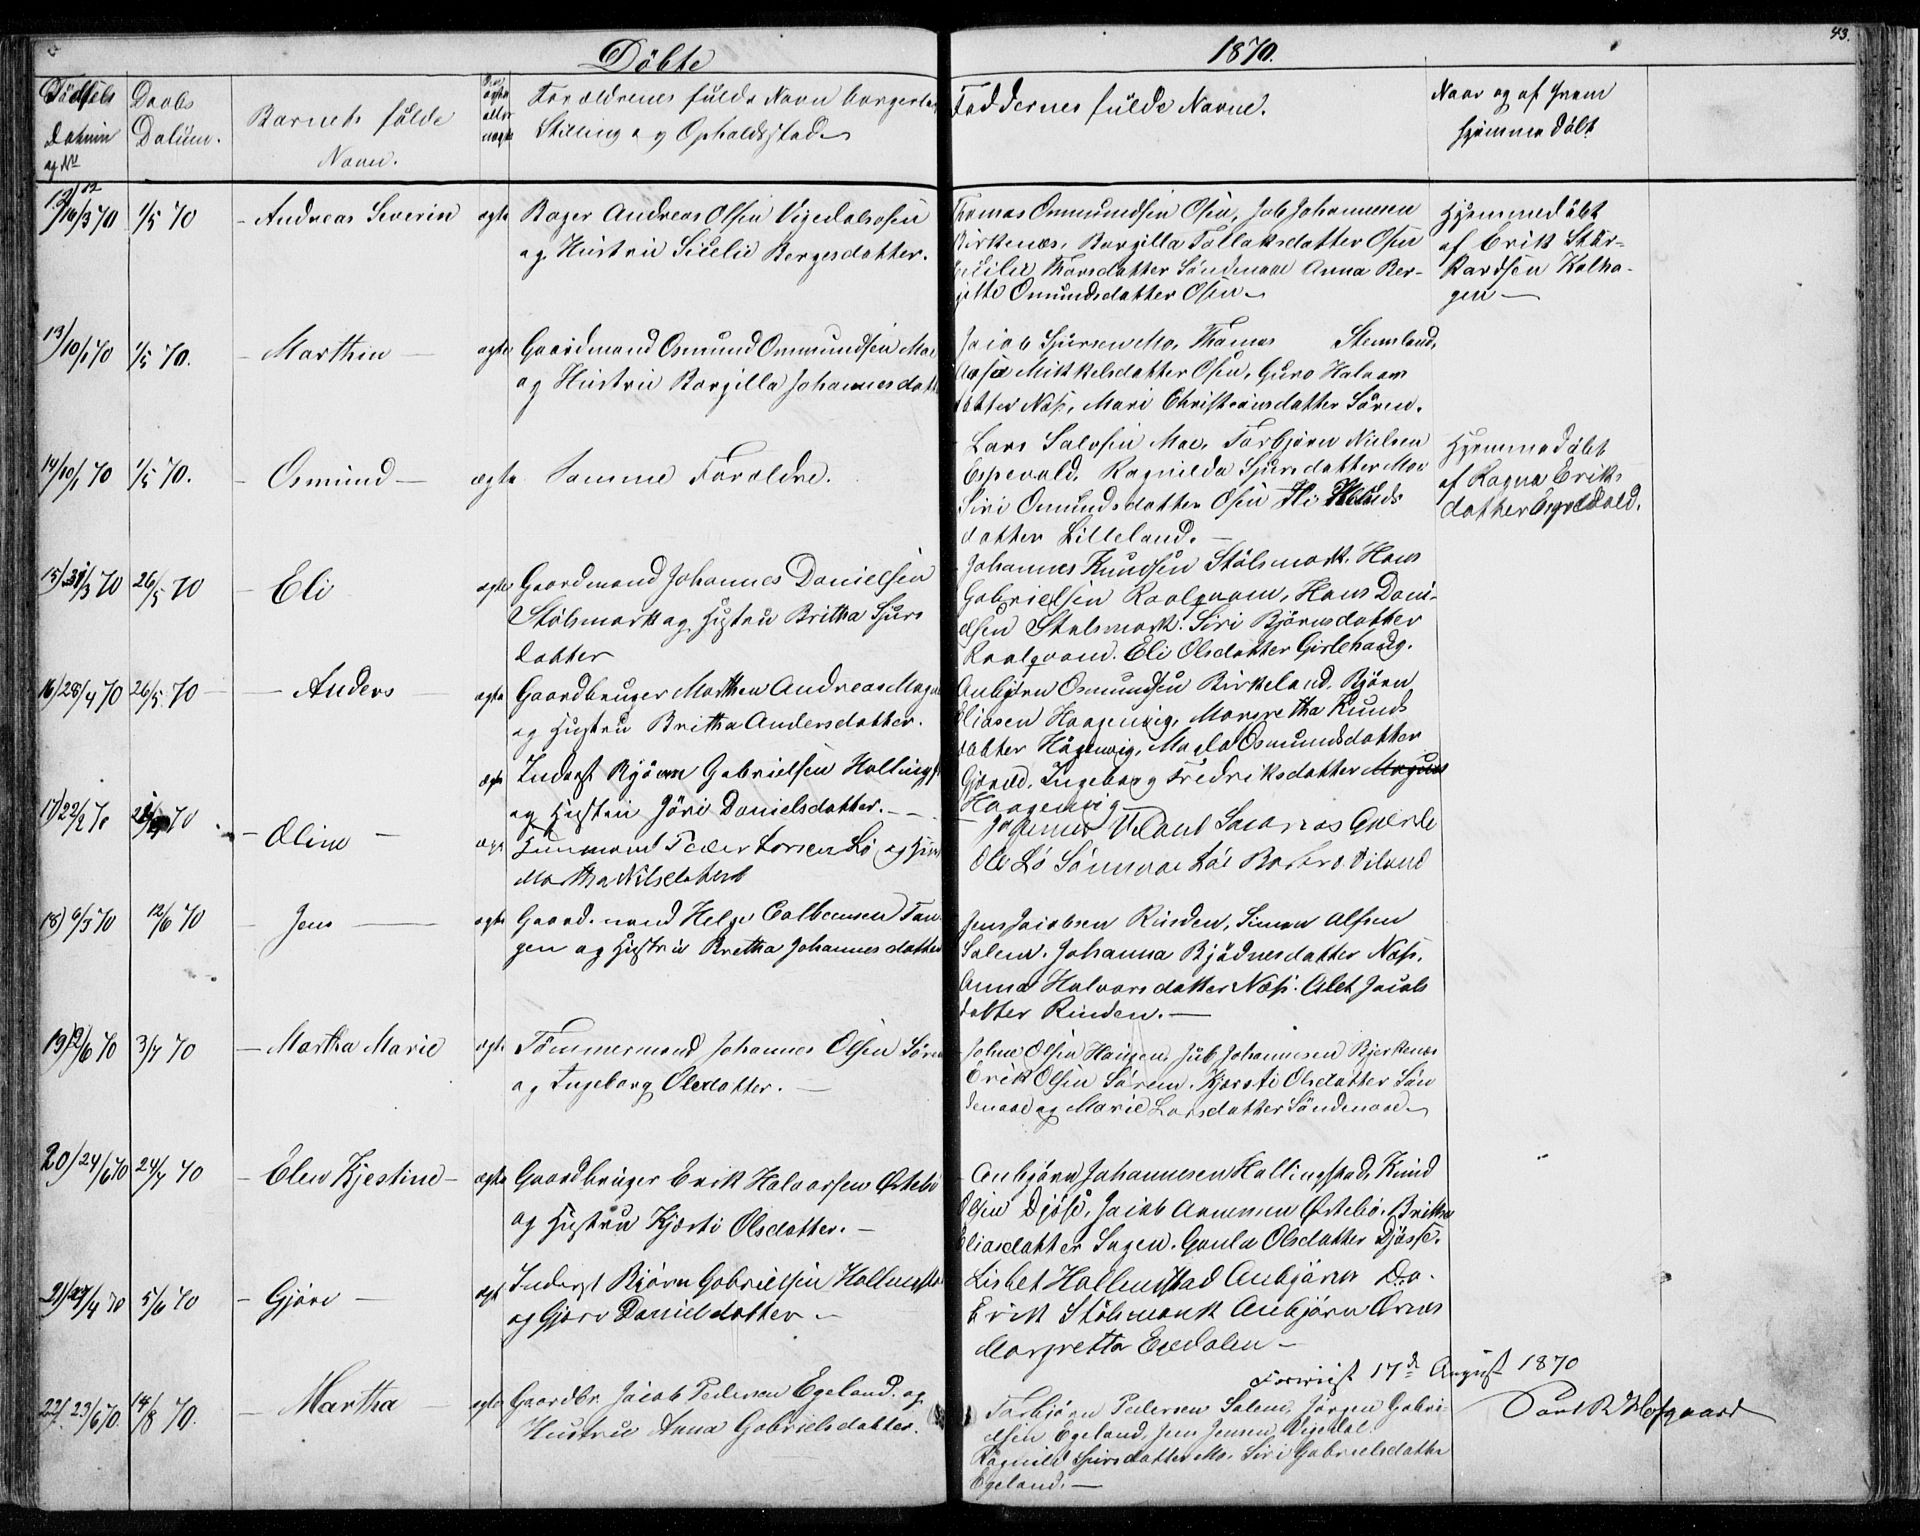 Döbte 1870. 43.
Födsels Datum og Nr
Daabs Datum.
Barnets fulde Navn.
ægte eller uægte
Forældrenes fulde Navn borgerlig Stilling og Opholdssted
Faddernes fulde Navne.
Naar og af hvem hjemmedöbt
12/ 16/3 70 1/5 70 – Andreas Severin ægte Bager Andreas Olsen Vigedalsosen
og Hustrue Sicelie Bergesdatter.
Thomas Osmundsen Osen, Job Johannesen
Birkenæs, Borgilla Tollaksdatter Osen
Thorsdatter Søndenaae Anna Ber-
gitte Omundsdatter Osen
Hjemmedöbt
af Erik Stur-
kardsen Kalha-
gen
13/ 10/1 70 1/5 70. – Marthin – ægte Gaardmand Osmund Osmundsen Moe
og Hustrue Borgilla Johannesdatt
Jacob Sjursen Mo, Thomas Stensland,
Aasa Mikkelsdatter Osen, Guro Halvors
datter Næs, Mari Christiansdatter Sören.
14/ 10/1 70 1/5 70. – Osmund – ægte Samme Foreldre.
Lars Salvesen Moe, Torbjörn Nielsen
Espevold, Ragnilda Sjursdatter Moe
Siri Omundsdatter Osen
datter Lilleland. –
Hjemmedöbt
af Ragna Eriks
datter Espevold.
15/ 31/3 70 26/5 70 – Eli ægte Gaardmand Johannes Danielsen
Stölsmark og Hustru Britha Sjurs
datter
Johannes Knudsen Stölsmark. Hans
Gabrielsen Raalqvam, Hans Dani-
elsen Stølsmark. Siri Björnsdatter
Raalqvam. Eli Olsdatter Girlehaug.
16/ 28/4 70 26/5 70 – Anders – ægte Gaardbruger Marthen Andreas
og Hustru Britha Andersdatter.
Anbjörn Osmundsen Birkeland, Björn
Eliasen Haagenvig, Margretha Knuds
datter Hagenvig, Magla Osmundsdatter
Ingeborg Fredriksdatter
Haagenvig
ægte Inderst Bjönn Gabrielsen Hallingst
og Hustru Jöri Danielsdatter. –
17/ 22/2 70 70 – Oline – ægte Huusmand Peder Larsen Lö og Hust
Martha Nilsdatter
Ole Lö
18/ 6/3 70 12/6 70 – Jens – ægte Gaardmand Helge Colbensen Tan-
gen og Hustrue Bretha Johannesdatter
Jens Jacobsen Rinden, Simon Alfsen
Salem. Johanna Bjödnesdatter Næs.
Anna Halvorsdatter Næs. Alet Jacobs
datter Rinden. –
19/ 2/6 70 3/7 70 – Martha Marie ægte Tömmermand Johannes Olsen Sören
og Ingeborg Olesdatter. –
Johne Olsen Haugen, Jub Johannesen Bjerkenæs
Erik Olsen Sörem. Kjersti Olsdatter Sön
denaae og Marie Larsdatter Söndenaae
20/ 24/6 70 24/7 70 – Elen Kjestine – ægte Gaardbruger Erik Halvorsen Østebö
og Hustru Kjersti Olsdatter. –
Anbjörn Johannesen Hallingstad, Knud
Olsen Djöse, Jacob Østebö. Britha
Eliasdatter Sagen. Gunla Olsdatter Djösse.
21/ 27/4 70 5/6 70 – Gjöre – ægt Inderst Bjørn Gabrielsen Hallingsta
og Gjöre Danielsdatter –
Lisbet Hallingstad Anbjörn Do.
Erik Stölsmark Anbjörn Örnes
Margretta Espedalen –
Forevist 17de August 1870
22/ 23/6 70. 14/8 70. – Martha – ægte Gaardbr. Jacob Pedersen Egeland. og
Hustrue Anna Gabrielsdatter.
Torbjörn Pedersen Salem, Jörgen Gabri-
elsen Egeland, Jens Jensen Vigedal.
Ragnild Sjursdatter Mo. Siri Gabrielsdatter
Egeland. –